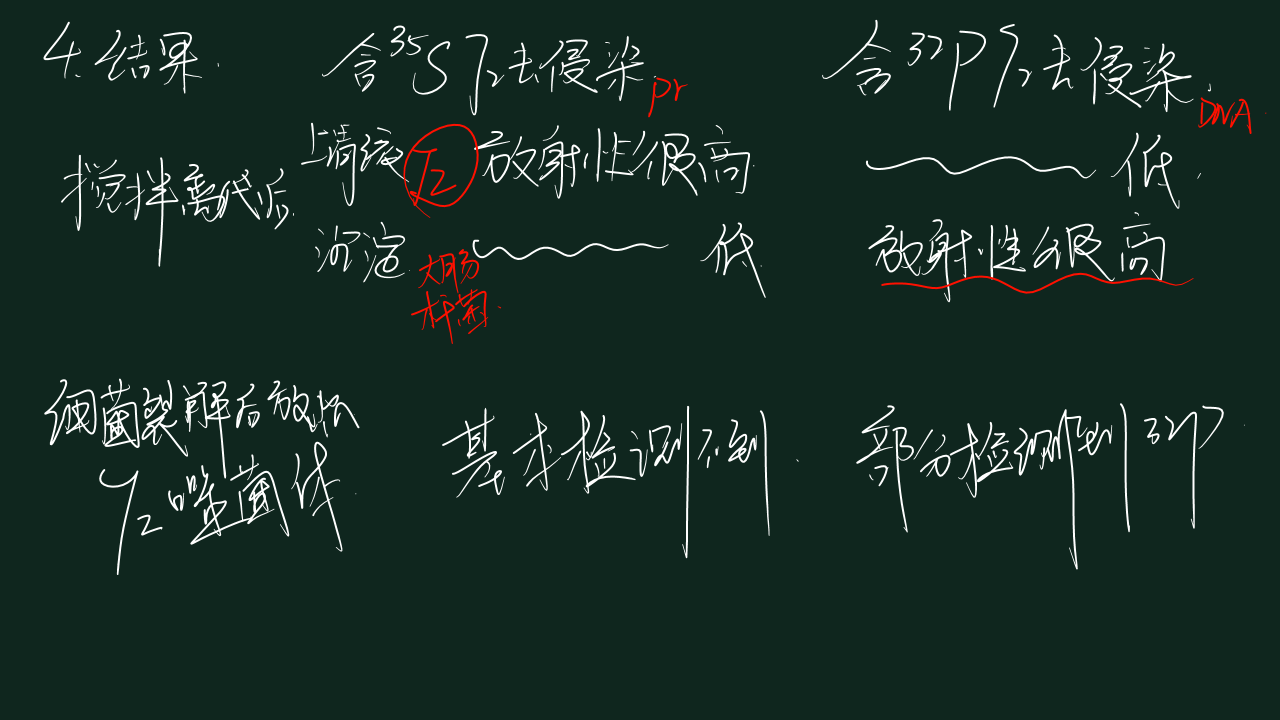 4.结果. 含³⁵S T₂去侵染 pr 含³²P T₂去侵染. DNA
搅拌离心后 上清液 T₂ 放射性很高 低.
沉淀 大肠杆菌. 低 放射性很高
细菌裂解后释放
T₂噬菌体. 基本检测不到. 部分检测到 32P